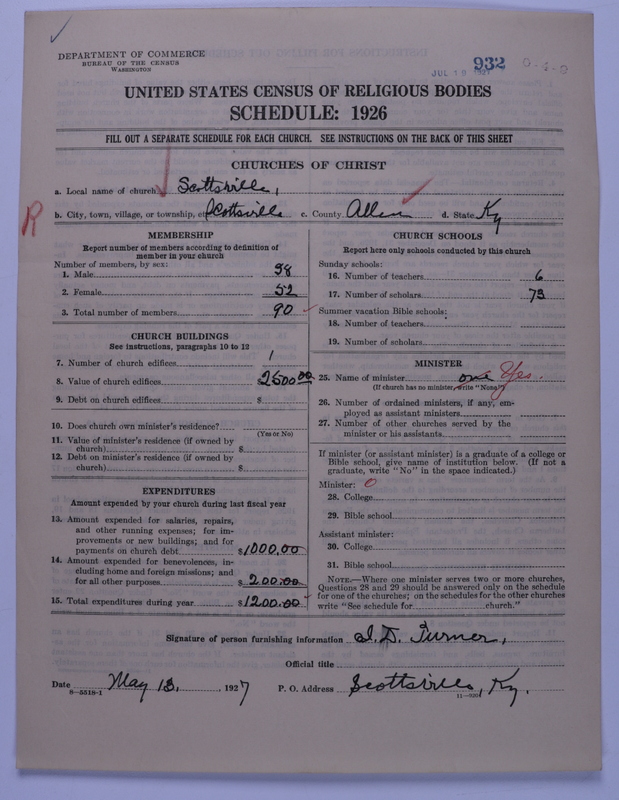 DEPARTMENT OF COMMERCE
BUREAU OF THE CENSUS
WASHINGTON
932
JUL 19 1927
UNITED STATES CENSUS OF RELIGIOUS BODIES
SCHEDULE: 1926
FILL OUT A SEPARATE SCHEDULE FOR EACH CHURCH. SEE INSTRUCTIONS ON THE BACK OF THIS SHEET
CHURCHES OF CHRIST
a. Local name of church Scottsville,
R b. City, town, village, or township, etc. Scottsville c. County Allen d. State Ky
MEMBERSHIP
Report number of members according to definition of
member in your church
Number of members, by sex:
1. Male 38
2. Female 52
3. Total number of members 90
CHURCH BUILDINGS
See instructions, paragraphs 10 to 12
7. Number of church edifices 1
8. Value of church edifices $2500.00
9. Debt on church edifices $
10. Does church own minister's residence?
(Yes or No)
11. Value of minister's residence (if owned by
church) $
12. Debt on minister's residence (if owned by
church) $
EXPENDITURES
Amount expended by your church during last fiscal year
13. Amount expended for salaries, repairs,
and other running expenses; for im-
provements or new buildings; and for
payments on church debt $1000.00
14. Amount expended for benevolences, in-
cluding home and foreign missions; and
for all other purposes $200.00
15. Total expenditures during year $1200.00
CHURCH SCHOOLS
Report here only schools conducted by this church
Sunday schools:
16. Number of teachers 6
17. Number of scholars 73
Summer vacation Bible schools:
18. Number of teachers
19. Number of scholars
MINISTER
25. Name of minister one Yes.
(If church has no minister, write "None")
26. Number of ordained ministers, if any, em-
ployed as assistant ministers
27. Number of other churches served by the
minister or his assistants
If minister (or assistant minister) is a graduate of a college or
Bible school, give name of institution below. (If not a
graduate, write "No" in the space indicated.)
Minister: 0
28. College
29. Bible school
Assistant minister:
30. College
31. Bible school
NOTE.—Where one minister serves two or more churches,
Questions 28 and 29 should be answered only on the schedule
for one of the churches; on the schedules for the other churches
write "See schedule for church."
Signature of person furnishing information Turner,
Official title
Date May 13, 1927 P. O. Address Scottsville, Ky.
8—5518-1